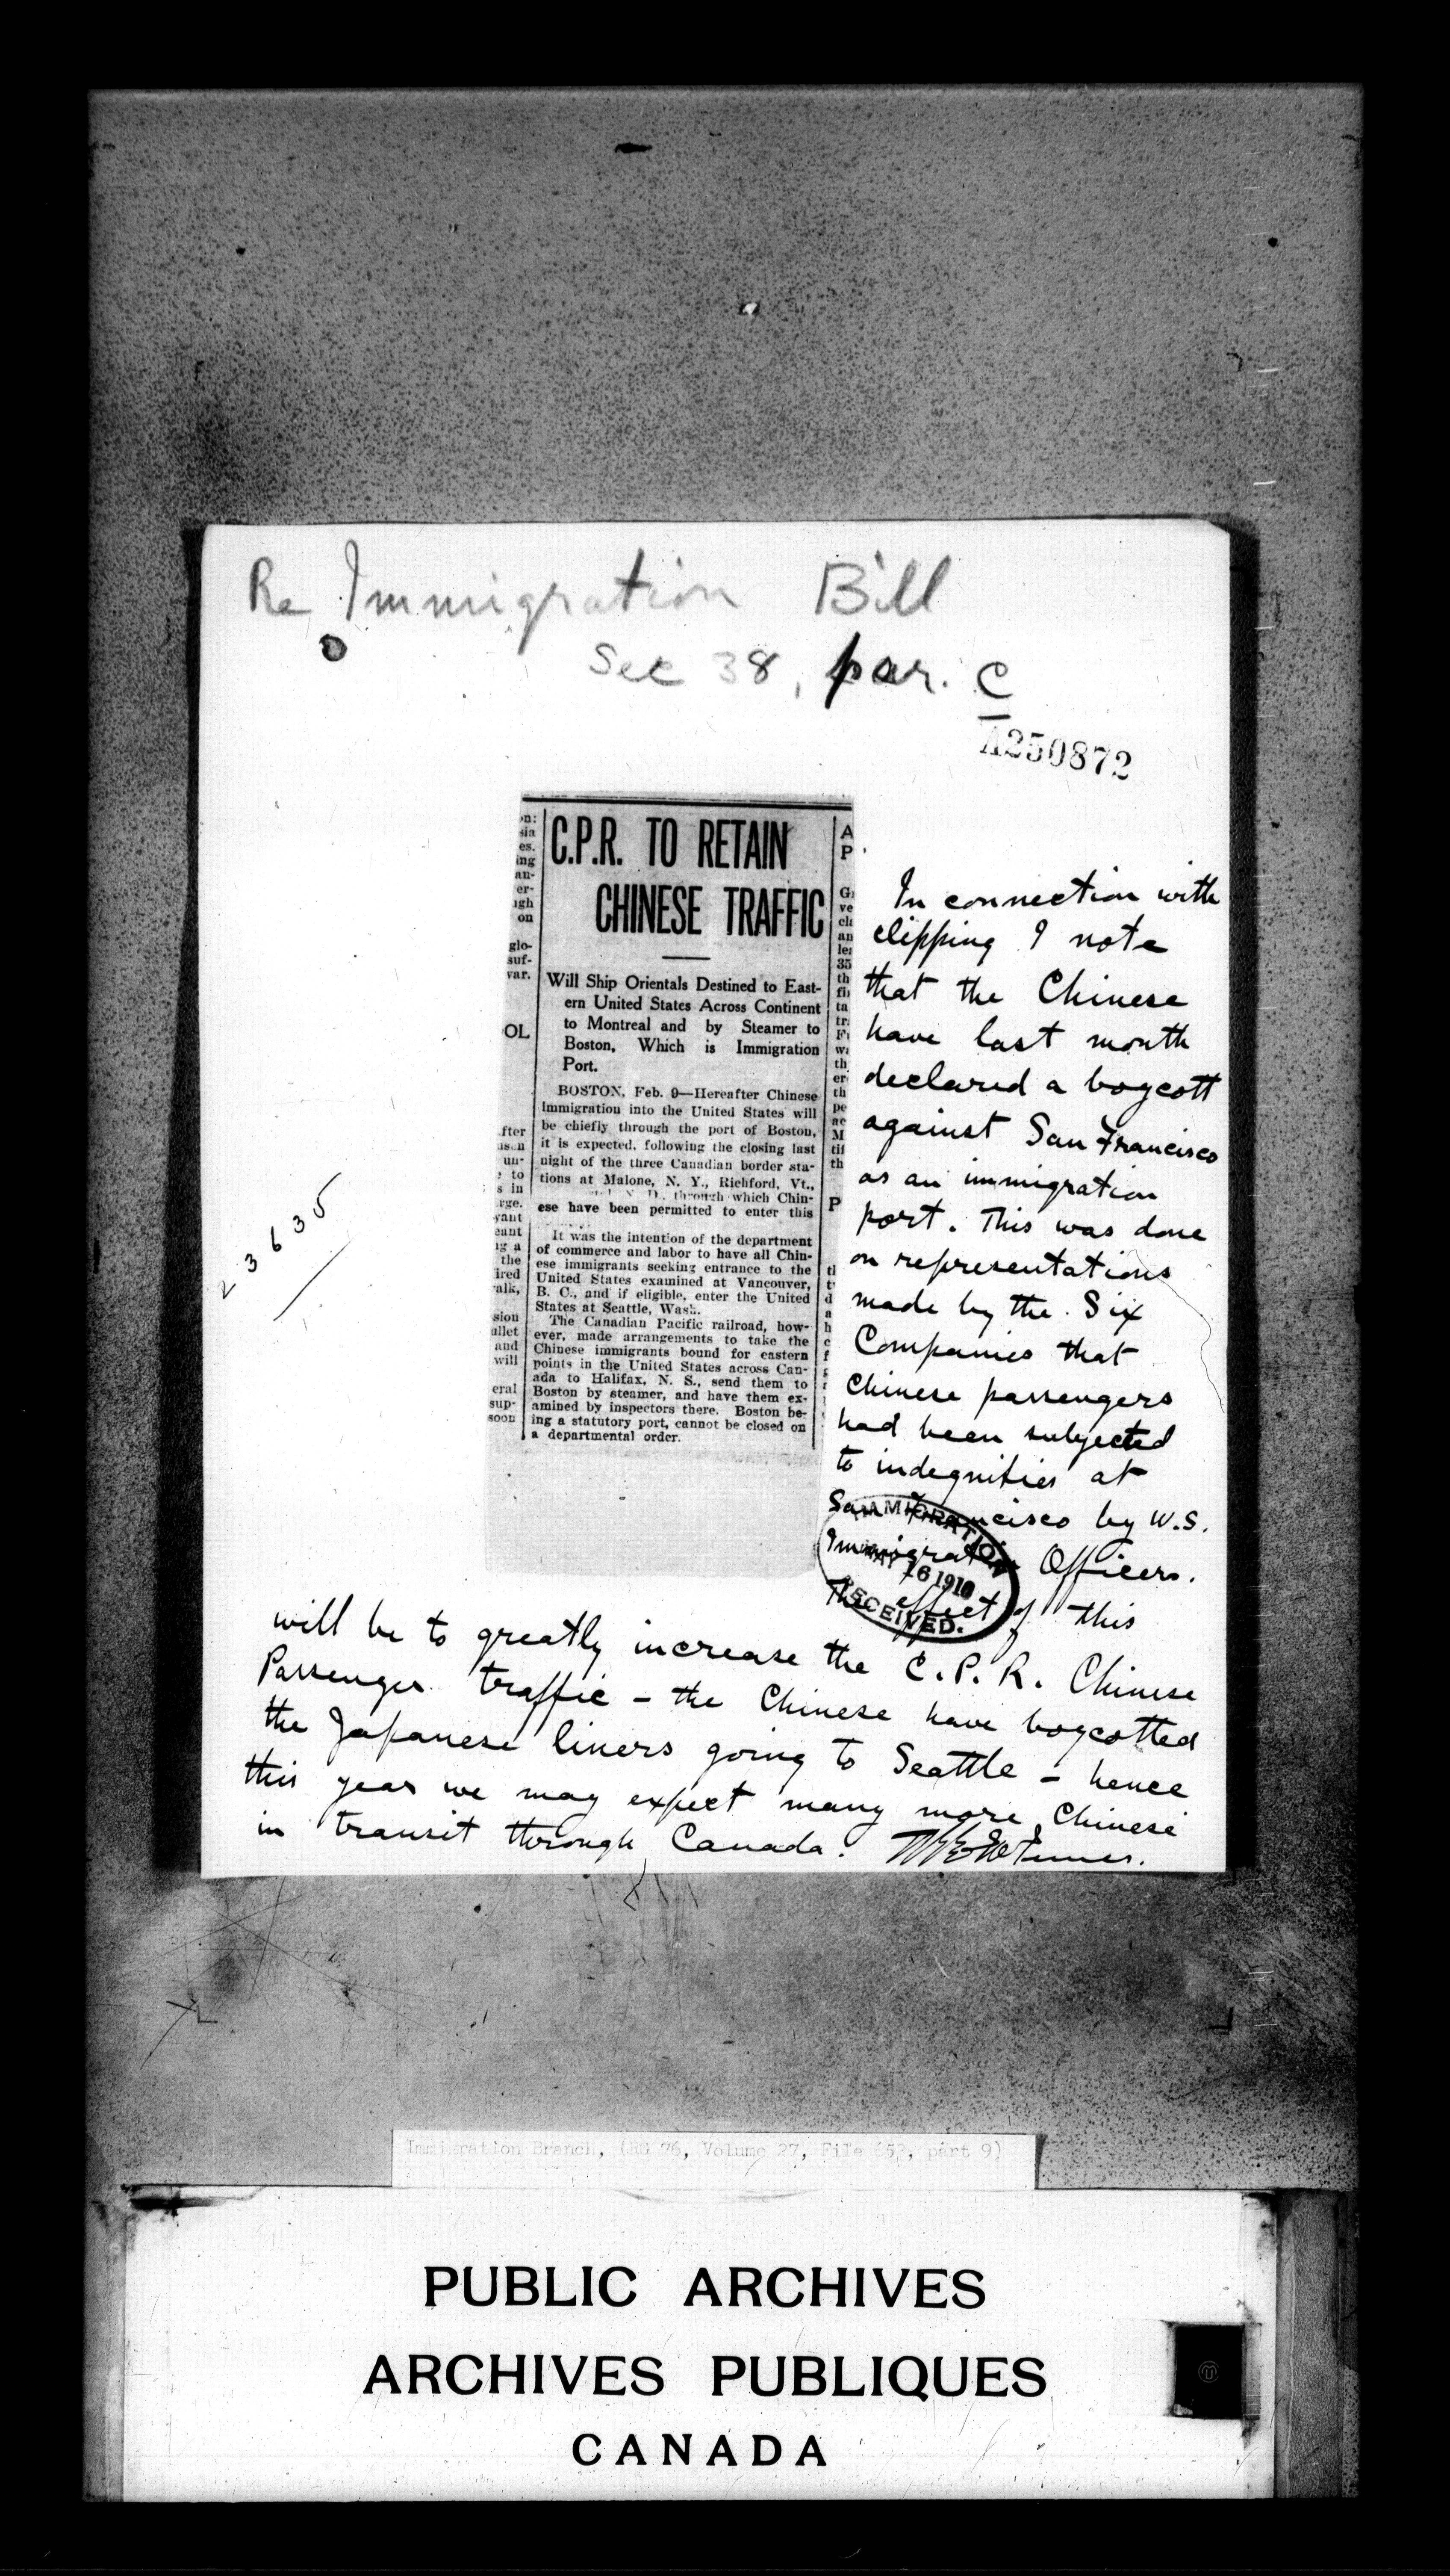 Re Immigration Bill
Sec 38, par. C
A250872
23635
C.P.R. TO RETAIN
CHINESE TRAFFIC
Will Ship Orientals Destined to East-
ern United States Across Continent
to Montreal and by Steamer to
Boston, Which is Immigration
Port.
BOSTON, Feb. 9—Hereafter Chinese
immigration into the United States will
be chiefly through the port of Boston,
it is expected, following the closing last
night of the three Canadian border sta-
tions at Malone, N. Y., Richford, Vt.,
N. D., through which Chin-
ese have been permitted to enter this
It was the intention of the department
of commerce and labor to have all Chin-
ese immigrants seeking entrance to the
United States examined at Vancouver,
B. C., and if eligible, enter the United
States at Seattle, Wash.
The Canadian Pacific railroad, how-
ever, made arrangements to take the
Chinese immigrants bound for eastern
points in the United States across Can-
ada to Halifax, N. S., send them to
Boston by steamer, and have them ex-
amined by inspectors there. Boston be-
ing a statutory port, cannot be closed on
a departmental order.
In connection with
clipping I note
that the Chinese
have last month
declared a boycott
against San Francisco
as an immigration
port. This was done
on representations
made by the Six
Companies that
Chinese passengers
had been subjected
to indegnities at
San Francisco by U.S.
Immigration Officers.
The effect of this
will be to greatly increase the C.P.R. Chinese
Passenger traffic – the Chinese have boycotted
the Japanese liners going to Seattle – hence
this year we may expect many more Chinese
in transit through Canada.
IMMIGRATION
16 1910
RECEIVED.
Immigration Branch, (RG 76, Volume 27, File 653, part 9)
PUBLIC ARCHIVES
ARCHIVES PUBLIQUES
CANADA